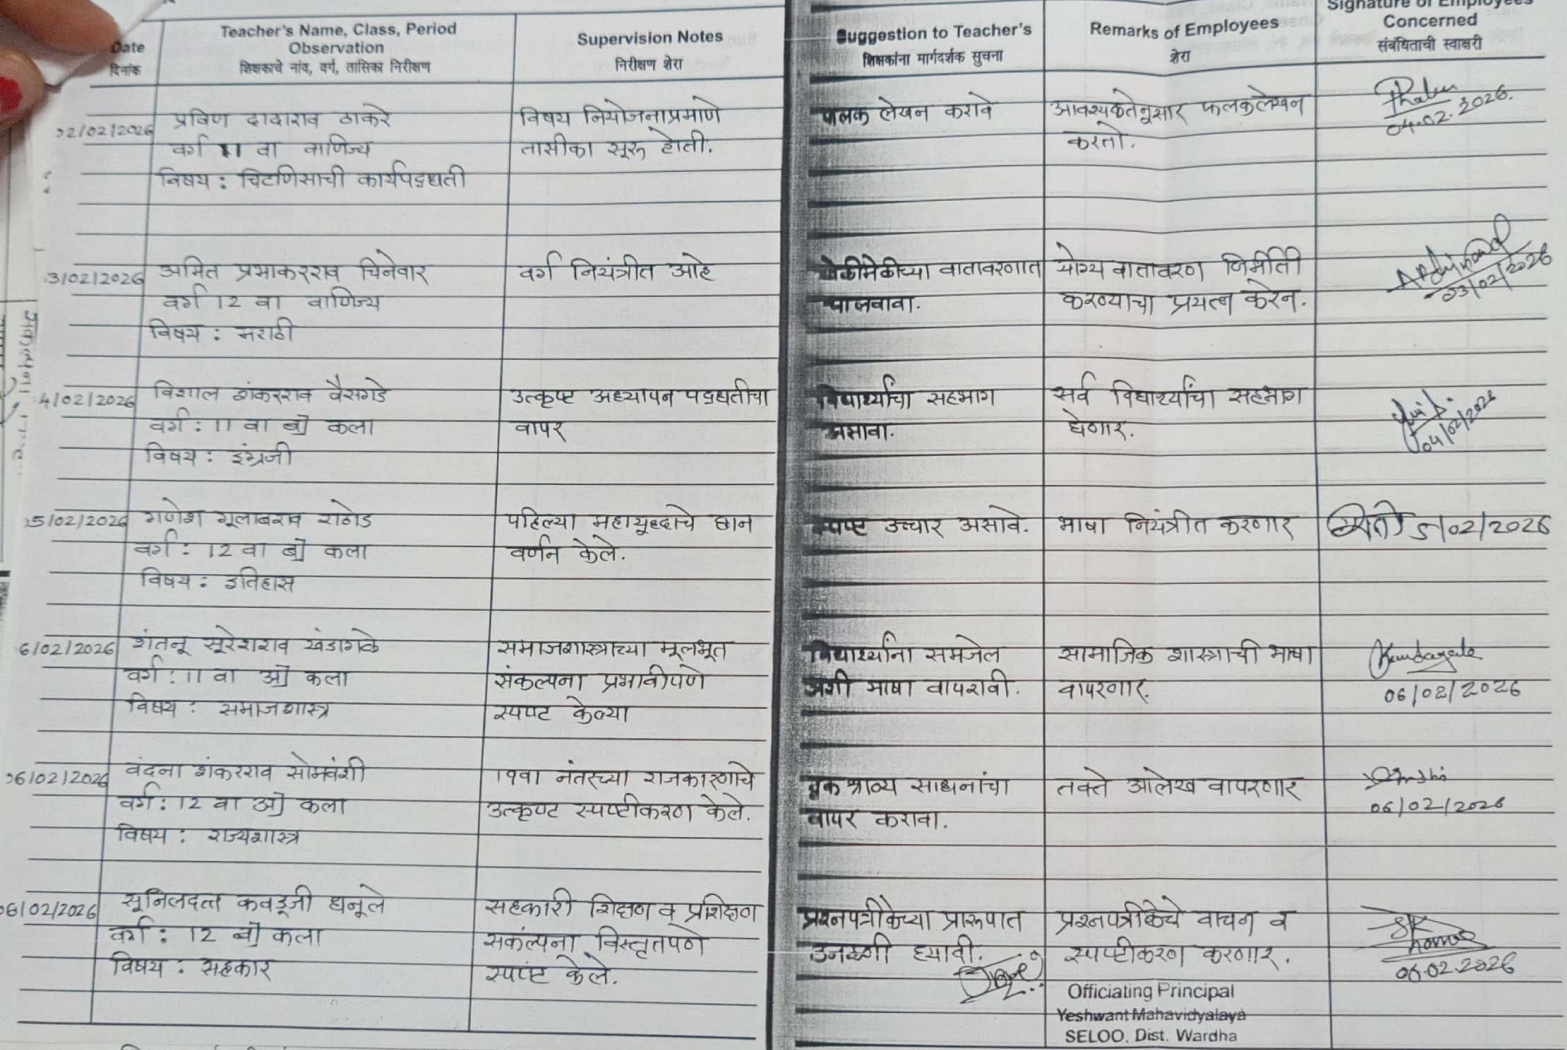 Date
दिनांक
Teacher's Name, Class, Period
Observation
शिक्षकाचे नांव, वर्ग, तासिका निरीक्षण
Supervision Notes
निरीक्षण शेरा
Suggestion to Teacher's
शिक्षकांना मार्गदर्शक सुचना
Remarks of Employees
शेरा
Signature of Employees
Concerned
संबंधिताची स्वाक्षरी
02/02/2026
प्रविण दादाराव ठाकरे
वर्ग 11 वा वाणिज्य
विषय : चिटणिसाची कार्यपद्धती
विषय नियोजनाप्रमाणे
तासीका सूरू होती.
फलक लेखन करावे
आवश्यकतेनुसार फलकलेखन
करतो.
04.02.2026.
3/02/2026
अमित प्रभाकरराव चिनेवार
वर्ग 12 वा वाणिज्य
विषय : मराठी
वर्ग नियंत्रीत आहे
वातावरणात
योग्य वातावरण निर्मिती
करण्याचा प्रयत्न करेन.
03/02/2026
4/02/2026
विशाल शंकरराव वैसगडे
वर्ग : 11 वा ब] कला
विषय : इंग्रजी
उत्कृष्ट अध्यापन पद्धतीचा
वापर
विद्यार्थ्यांचा सहभाग
असावा.
सर्व विद्यार्थ्यांचा सहभाग
घेणार.
04/02/2026
5/02/2026
गणेश गूलाबराव राठोड
वर्ग : 12 वा ब] कला
विषय : इतिहास
पहिल्या महायूद्धाचे छान
वर्णन केले.
स्पष्ट उच्चार असावे.
भाषा नियंत्रीत करणार
5/02/2026
6/02/2026
शंतनू सूरेशराव खंडागळे
वर्ग : 11 वा अ] कला
विषय : समाजशास्त्र
समाजशास्त्राच्या मूलभूत
संकल्पना प्रभावीपणे
स्पष्ट केल्या
विद्यार्थ्यांना समजेल
अशी भाषा वापरावी.
सामाजिक शास्त्राची भाषा
वापरणार.
06/02/2026
06/02/2026
वंदना शंकरराव सोमवंशी
वर्ग : 12 वा अ] कला
विषय : राज्यशास्त्र
१९वा नंतरच्या राजकारणाचे
उत्कृष्ट स्पष्टीकरण केले.
दृक श्राव्य साधनांचा
वापर करावा.
तक्ते आलेख वापरणार
06/02/2026
06/02/2026
सूनिलदत्त कवडूजी धनूले
वर्ग : 12 ब] कला
विषय : सहकार
सहकारी शिक्षण व प्रशिक्षण
संकल्पना विस्तृतपणे
स्पष्ट केले.
प्रश्नपत्रीकेच्या प्रारूपात
उजळणी घ्यावी.
प्रश्नपत्रीकेचे वाचन व
स्पष्टीकरण करणार.
06.02.2026
Officiating Principal
Yeshwant Mahavidyalaya
SELOO. Dist. Wardha